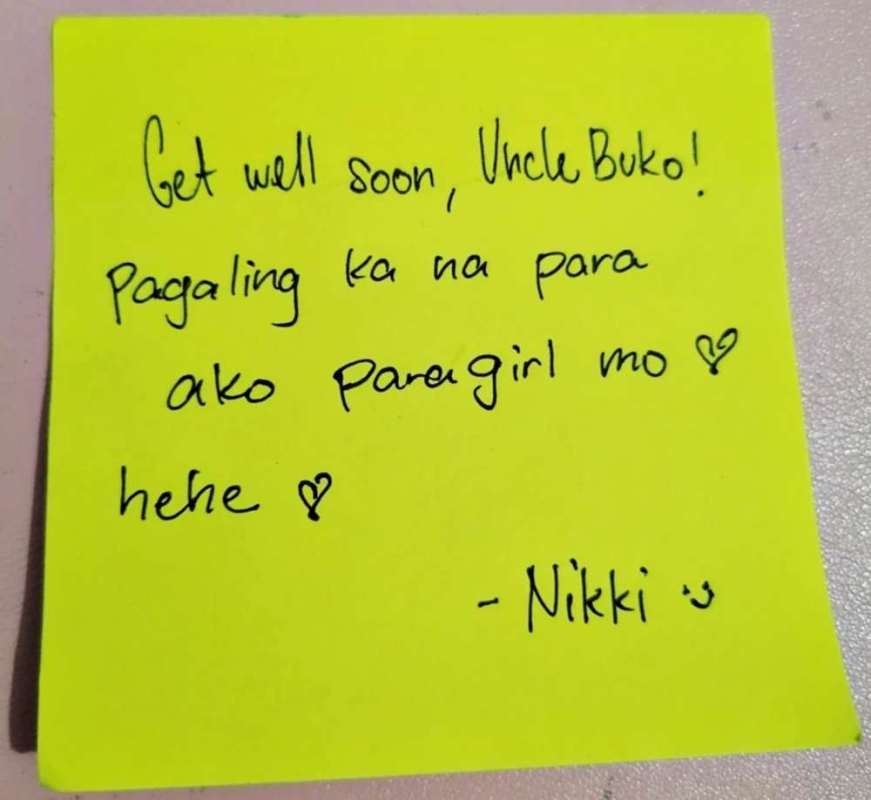 Get well soon, Uncle Buko!
Pagaling ka na para
ako paragirl mo ♡
hehe ♡
- Nikki :)